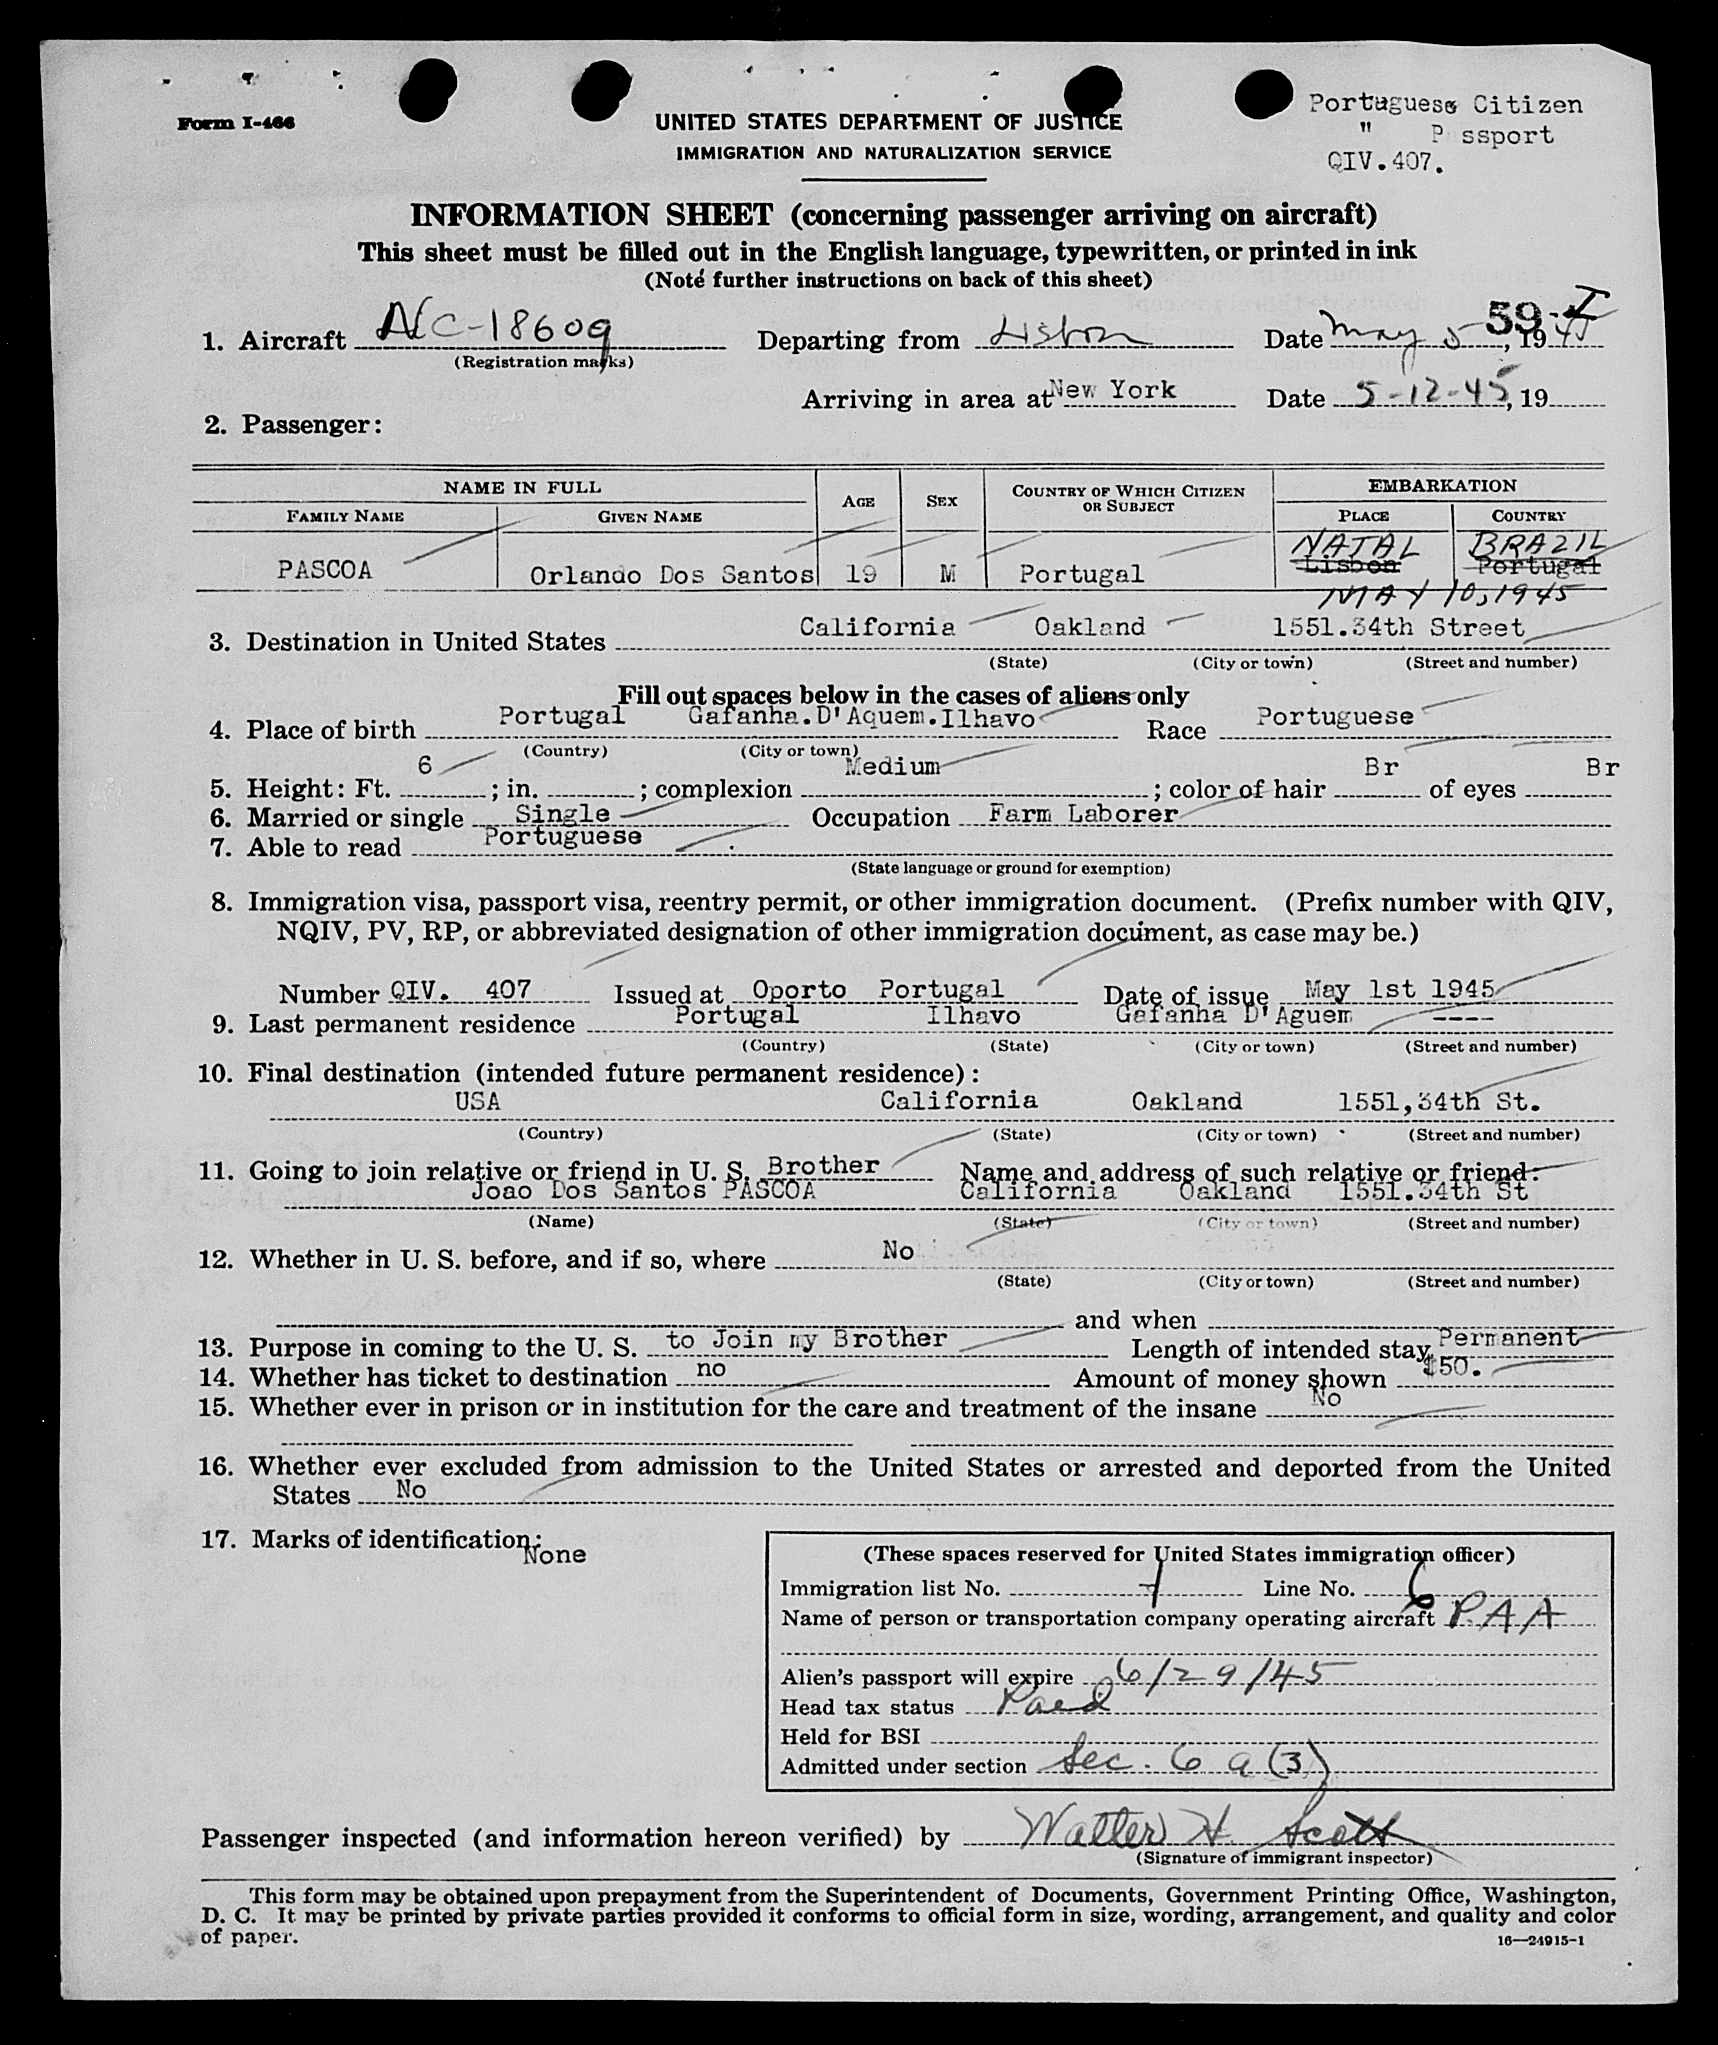 Form I-466
UNITED STATES DEPARTMENT OF JUSTICE
IMMIGRATION AND NATURALIZATION SERVICE
Portuguese Citizen
" P ssport
QIV.407.
INFORMATION SHEET (concerning passenger arriving on aircraft)
This sheet must be filled out in the English language, typewritten, or printed in ink
(Note further instructions on back of this sheet)
59-I
1. Aircraft NC-18609 Departing from Lisbon Date May 5, 1945
(Registration marks)
Arriving in area at New York Date 5-12-45, 19
2. Passenger:
NAME IN FULL AGE SEX COUNTRY OF WHICH CITIZEN OR SUBJECT EMBARKATION
FAMILY NAME GIVEN NAME PLACE COUNTRY
NATAL BRAZIL
PASCOA Orlando Dos Santos 19 M Portugal Lisbon Portugal
MAY 10, 1945
3. Destination in United States California Oakland 1551.34th Street
(State) (City or town) (Street and number)
Fill out spaces below in the cases of aliens only
4. Place of birth Portugal Gafanha.D'Aquem.Ilhavo Race Portuguese
(Country) (City or town)
5. Height: Ft. 6; in. ; complexion Medium; color of hair Br of eyes Br
6. Married or single Single Occupation Farm Laborer
7. Able to read Portuguese
(State language or ground for exemption)
8. Immigration visa, passport visa, reentry permit, or other immigration document. (Prefix number with QIV,
NQIV, PV, RP, or abbreviated designation of other immigration document, as case may be.)
Number QIV. 407 Issued at Oporto Portugal Date of issue May 1st 1945
9. Last permanent residence Portugal Ilhavo Gafanha D'Aguem ----
(Country) (State) (City or town) (Street and number)
10. Final destination (intended future permanent residence):
USA California Oakland 1551,34th St.
(Country) (State) (City or town) (Street and number)
11. Going to join relative or friend in U. S. Brother Name and address of such relative or friend:
Joao Dos Santos PASCOA California Oakland 1551.34th St
(Name) (State) (City or town) (Street and number)
12. Whether in U. S. before, and if so, where No
(State) (City or town) (Street and number)
and when
13. Purpose in coming to the U. S. to Join my Brother Length of intended stay Permanent
14. Whether has ticket to destination no Amount of money shown $50.
15. Whether ever in prison or in institution for the care and treatment of the insane No
16. Whether ever excluded from admission to the United States or arrested and deported from the United
States No
17. Marks of identification:
None
(These spaces reserved for United States immigration officer)
Immigration list No. 1 Line No. 6
Name of person or transportation company operating aircraft P.A.A
Alien's passport will expire 6/29/45
Head tax status Paid
Held for BSI
Admitted under section Sec. 6 a (3)
Passenger inspected (and information hereon verified) by Walter H. Scott
(Signature of immigrant inspector)
This form may be obtained upon prepayment from the Superintendent of Documents, Government Printing Office, Washington,
D. C. It may be printed by private parties provided it conforms to official form in size, wording, arrangement, and quality and color
of paper.
16—24915-1